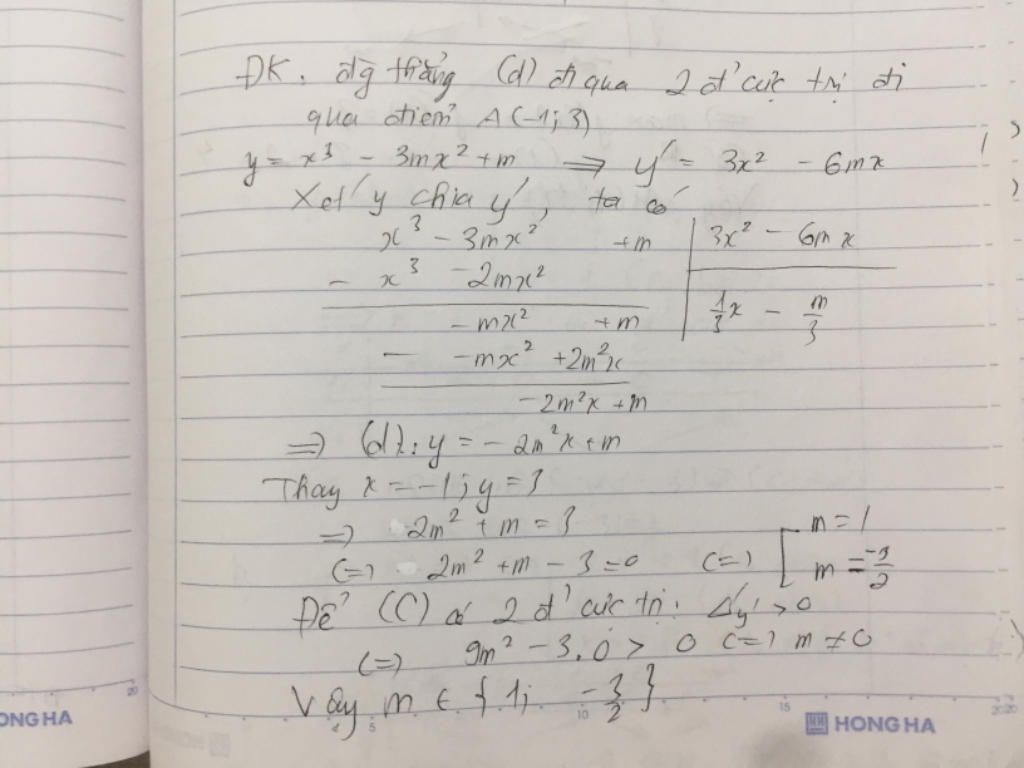 ĐK. đg thẳng (d) đi qua 2 đ' cực trị đi
qua điểm A(-1; 3)
y = x³ - 3mx² + m ⇒ y' = 3x² - 6mx
Xét y chia y', ta có
x³ - 3mx² + m | 3x² - 6mx
- x³ - 2mx²
- mx² + m | 1/3 x - m/3
- - mx² + 2m²x
- 2m²x + m
⇒ (d): y = - 2m²x + m
Thay x = -1; y = 3
⇒ 2m² + m = 3
(=) 2m² + m - 3 = 0 (=) [ m = 1
m = -3/2
Để (C) có 2 đ' cực trị. Δ'y' > 0
(=) 9m² - 3.0 > 0 (=) m ≠ 0
Vậy m ∈ { 1; -3/2 }
ONG HA
20
5
10
15
HONG HA